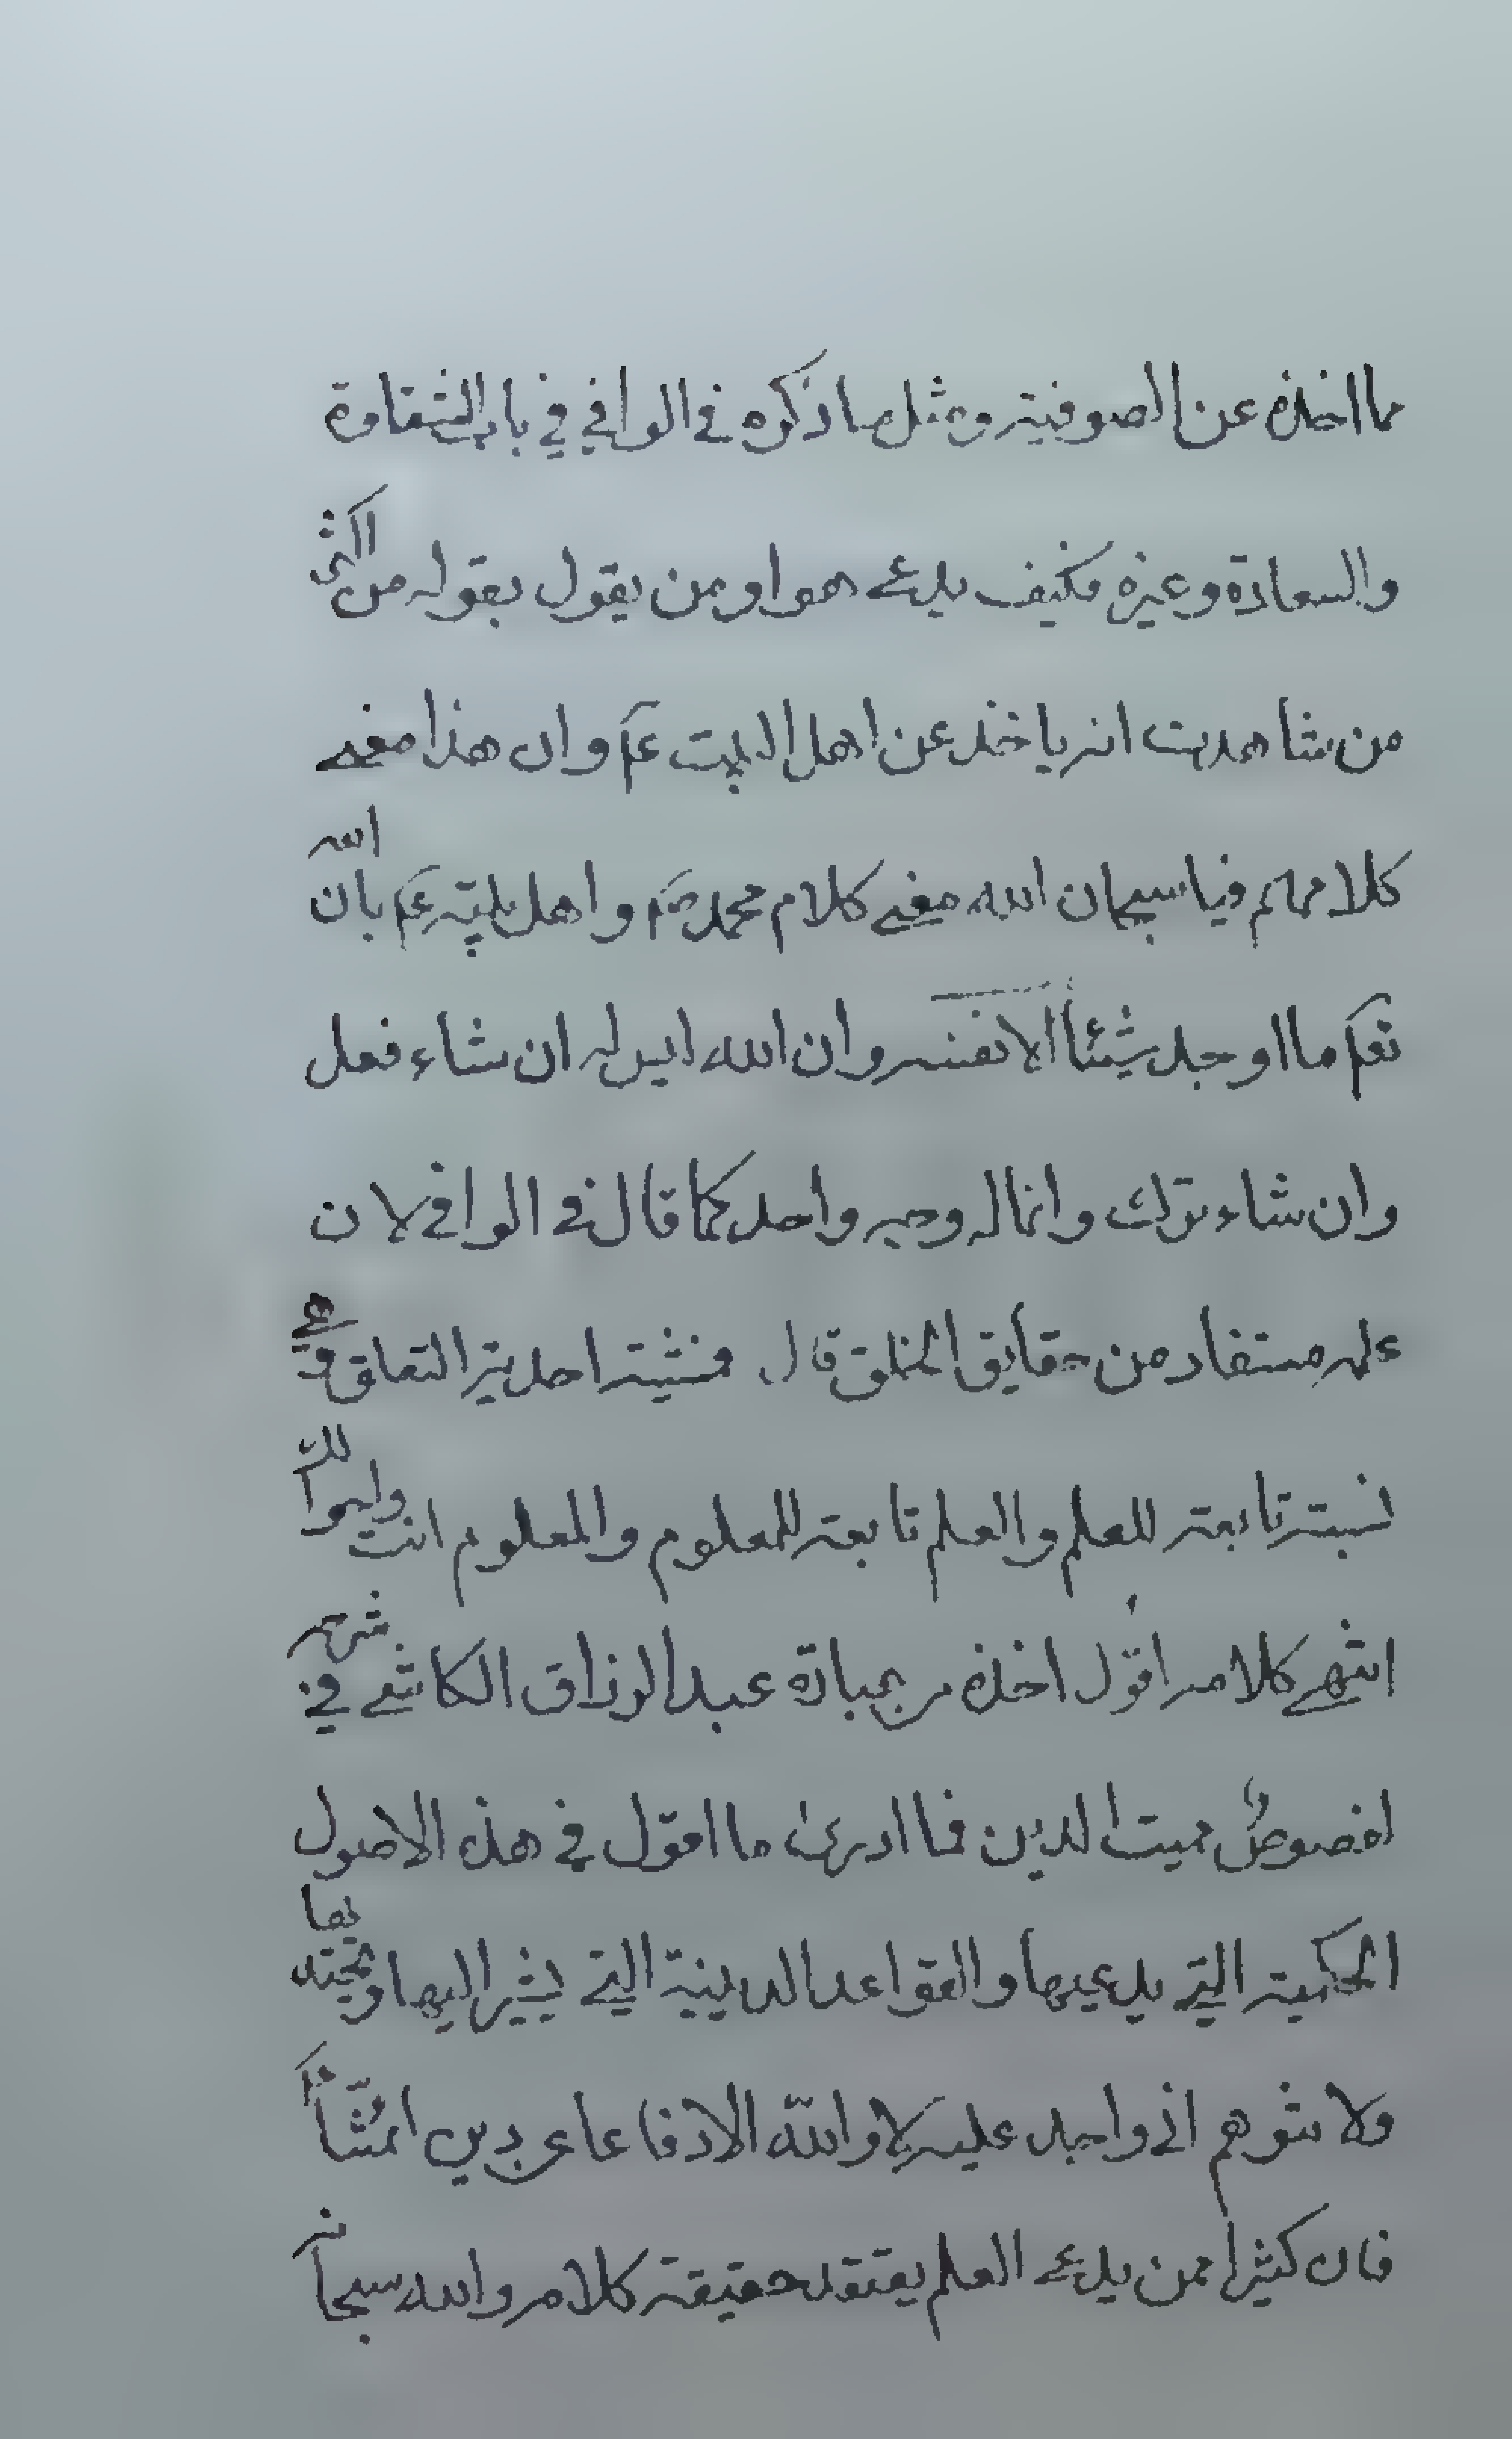 مما اخذه عن الصوفية ومثل ما ذكره في الوافي في باب الشقاوة
والسعادة وغيره فكيف يدعي هو او من يقول بقوله من اكثر
من شاهدت انه ياخذ عن اهل البيت عم وان هذا معنى
كلامهم فيا سبحان الله معنى كلام محمد ص واهل بيته عم بان الله
تعالى ما اوجد شيئا الا نفسه وان الله ليس له ان شاء فعل
وان شاء ترك وانما له وجه واحد كما قال في الوافي لان
علمه مستفاد من حقايق الخلق قال فمشيته احدية التعلق وهي
نسبة تابعة للعلم والعلم تابعة للمعلوم والمعلوم انت واحوالك
انتهى كلامه اقول اخذه من عبارة عبد الرزاق الكاشي في شرحه
لفصوص مميت الدين فما ادرى ما اقول في هذه الاصول
الحكمية التي يدعيها والقواعد الدينية التي يشير اليها ويعتقدها
ولا تتوهم اني واجد عليه لا والله الا دفاعا عن دين ائمتنا
فان كثيرا ممن يدعي العلم يعتقد حقيقة كلامه والله سبحانه